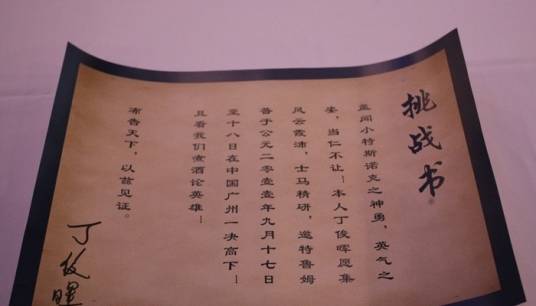 挑战书
盖闻小特斯诺克之神勇，英气之
姿，当仁不让…本人丁俊晖愿集
风云霞沛，士马精研，邀特鲁姆
普于公元二零壹壹年九月十七日
至十八日在中国广州一决高下…
且看我们煮酒论英雄…
布告天下，以兹见证。
丁俊晖